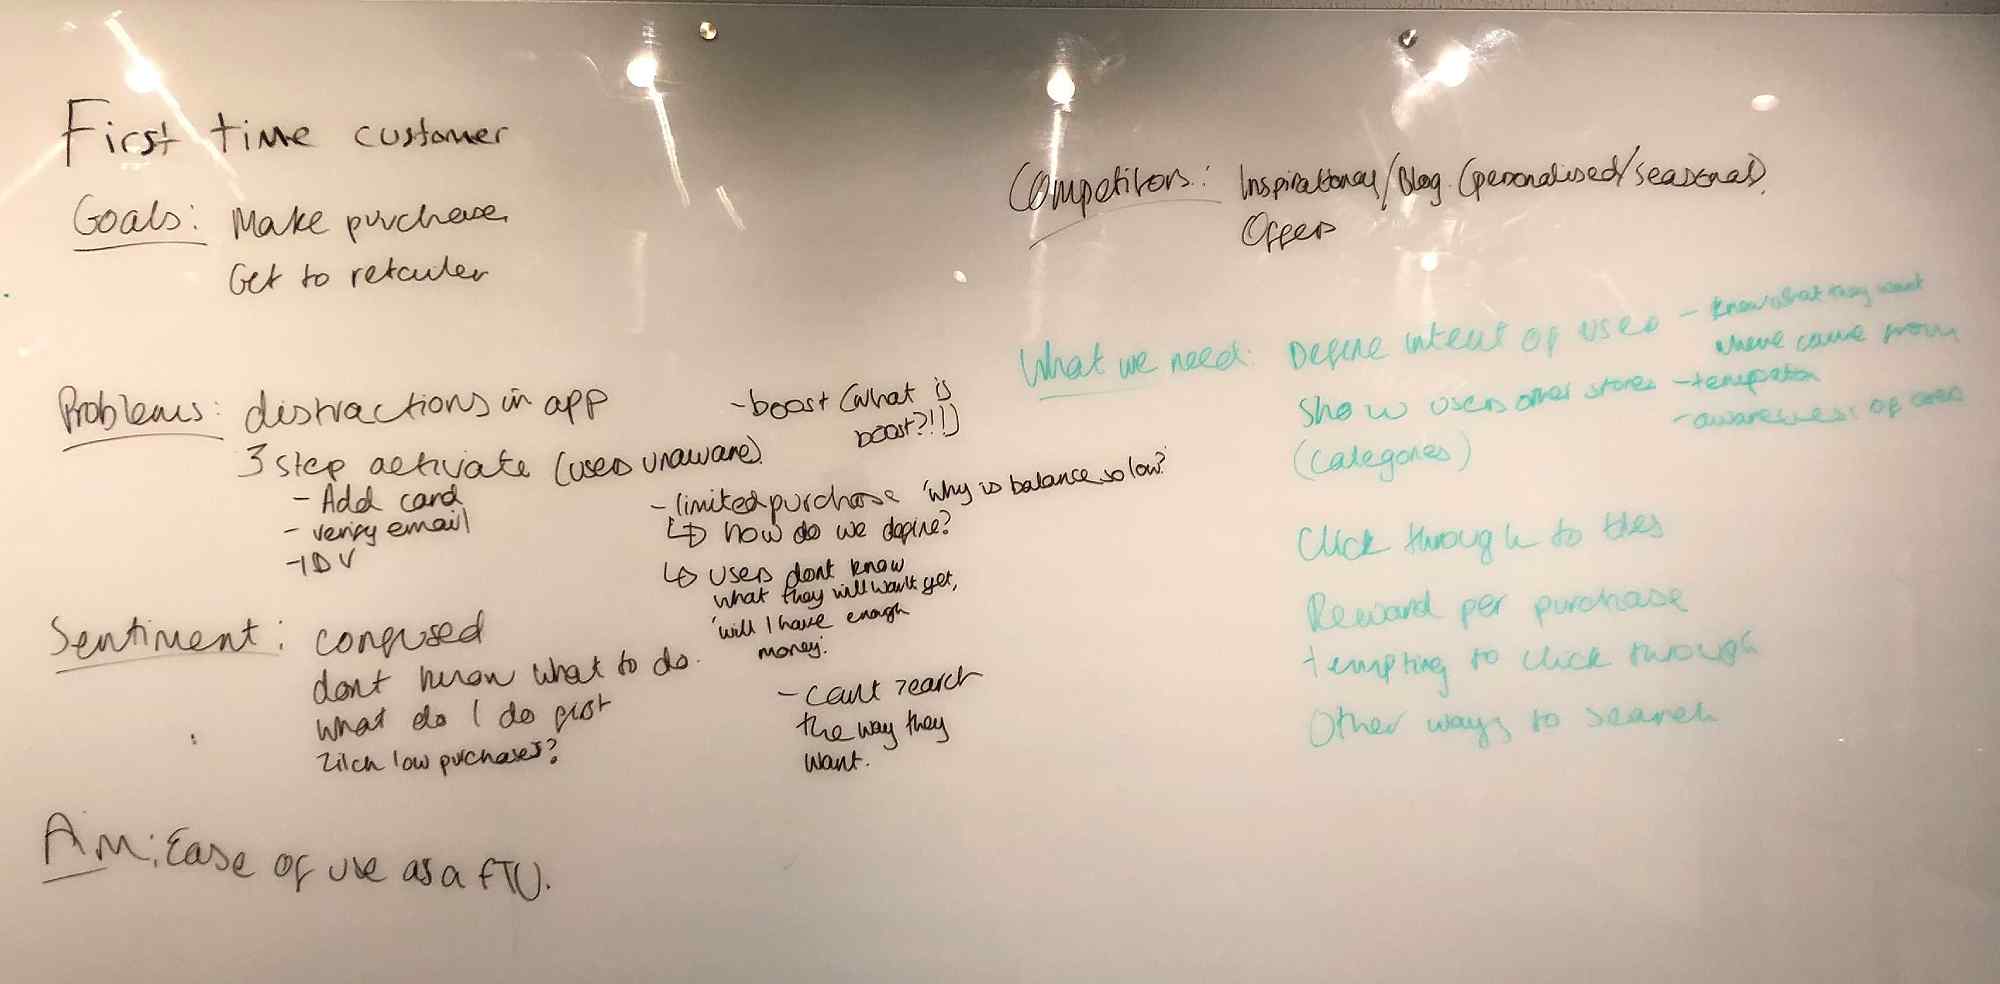 First time customer
Goals: Make purchase
Get to retailer
Problems: distractions in app
3 step activate (users unaware)
- Add card
- verify email
- IDV
- boost (what is
boost?!!)
- limited purchase 'why is balance so low?'
↳ how do we define?
↳ users dont know
what they will want yet,
'will I have enough
money.'
- cant search
the way they
want.
Sentiment: confused
dont know what to do.
what do I do first
Zilch low purchases?
Aim: Ease of use as a FTU.
Competitors: Inspirational/Blog (personalised/seasonal)
Offers
What we need: Define intent of user - know what they want
where came from
Show users other stores - temptation
(categories) - awareness of
Click through to tiles
Reward per purchase
tempting to click through
Other ways to search